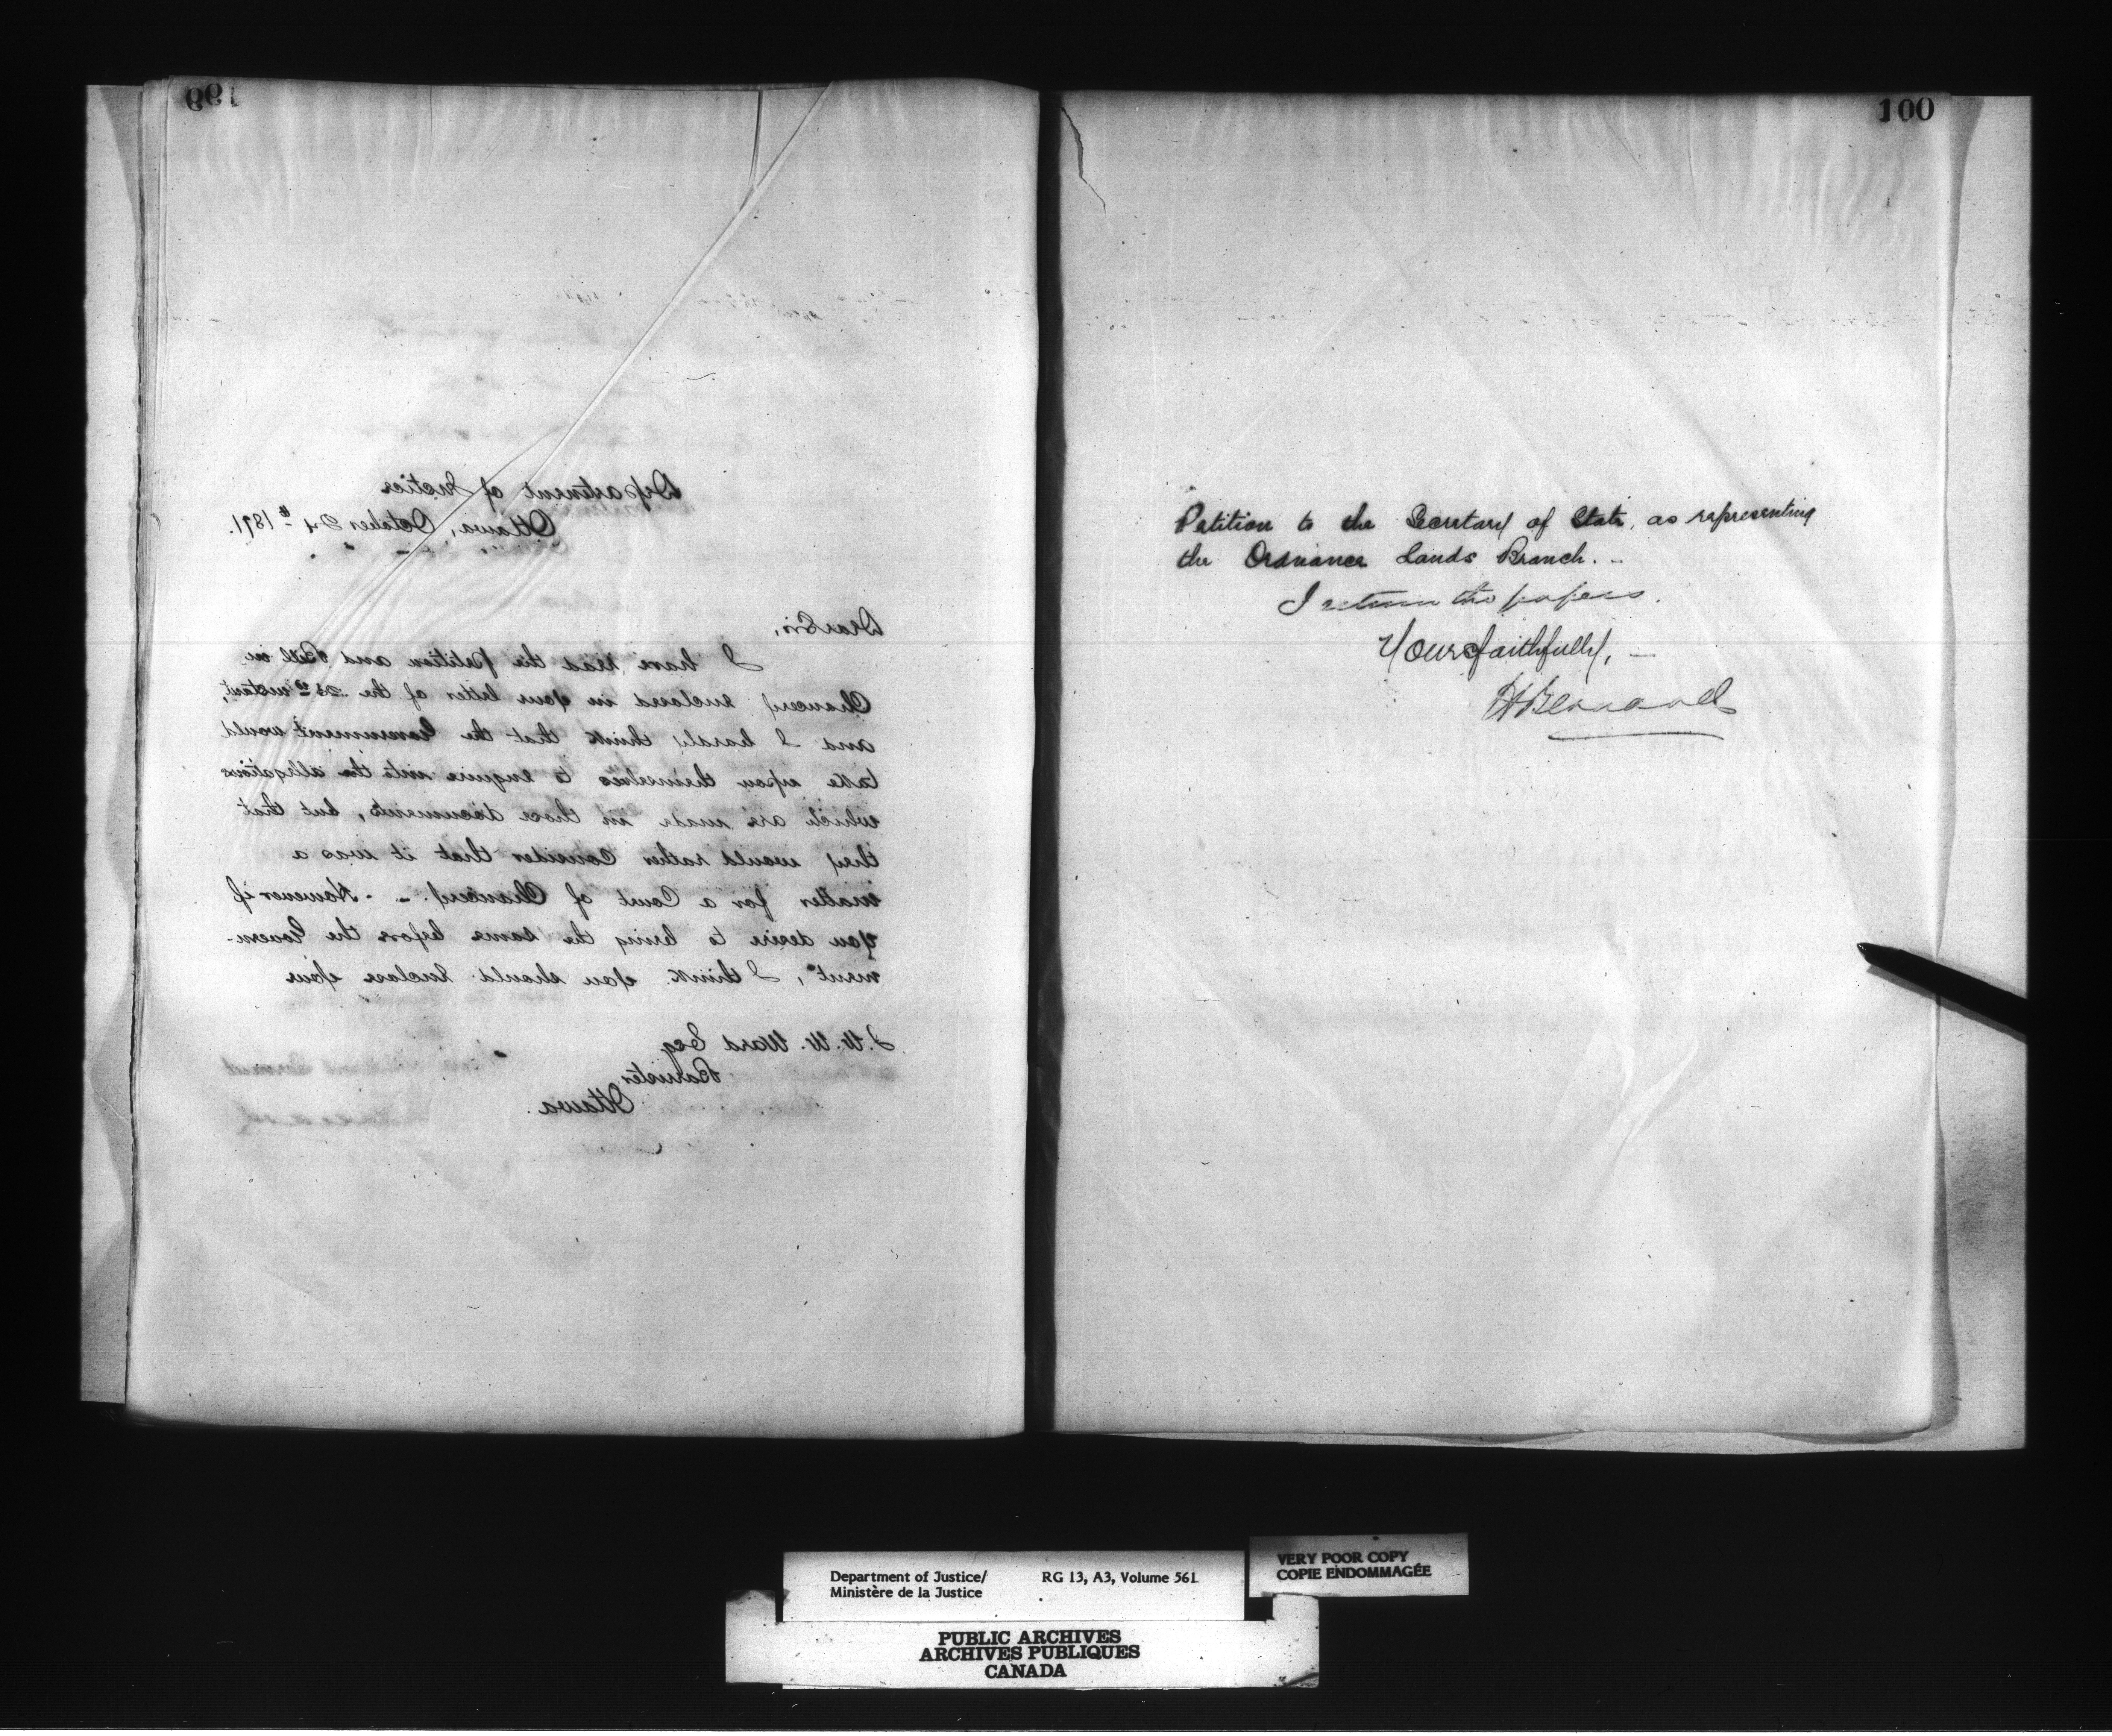 99
Department of Justice
Ottawa, October 24th 1871.
Dear Sir,
I have read the petition and Bill in
Chancery enclosed in your letter of the 23rd instant,
and I hardly think that the Government would
take upon themselves to enquire into the allegations
which are made in those documents, but that
they would rather consider that it was a
matter for a Court of Chancery. - However if
you desire to bring the same before the Govern-
ment, I think you should enclose your
J. W. W. Ward Esq
Barrister
Ottawa.
100
Petition to the Secretary of State, as representing
the Ordnance Lands Branch. -
I return the papers.
Yours faithfully, -
H Bernard
Department of Justice/
Ministère de la Justice
RG 13, A3, Volume 561
VERY POOR COPY
COPIE ENDOMMAGÉE
PUBLIC ARCHIVES
ARCHIVES PUBLIQUES
CANADA